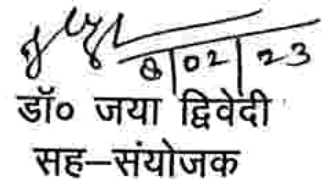 8|02|23
डॉ० जया द्विवेदी
सह-संयोजक